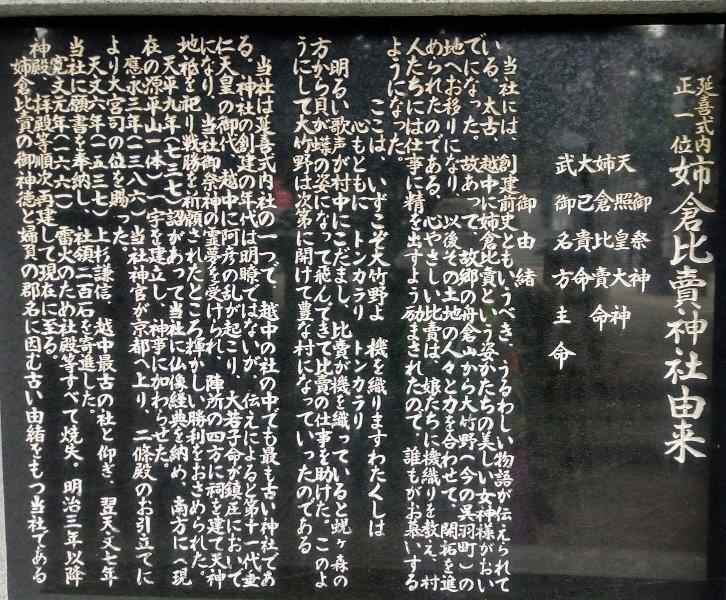 延喜式内
正一位
姉倉比賣神社由来
御祭神
天照皇大神
姉倉比賣命
大己貴命
武御名方主命
御由緒
当社には、創建前史ともいうべき、うるわしい物語が伝えられて
いる。太古、越中に姉倉比賣という姿かたちの美しい女神様がおい
でになった。故あって、故郷の舟倉山から大竹野(今の呉羽町)の
地へお移りになり、以後その土地の人々と力を合わせて、開拓を進
められたのである。心やさしい比賣は、娘たちに機織りを教え、村
人たちには仕事に精を出すよう励まされたので、誰もがお慕いする
ようになった。
ここは、いずこぞ大竹野よ 機を織りますわたくしは
心もともに トンカラリ トンカラリ
明るい歌声が村中にこだまし、比賣が機を織っていると蜆ヶ森の
方から貝が蝶の姿になって飛んできて比賣の仕事を助けた。このよ
うにして大竹野は次第に開けて豊な村になっていったのである
当社は延喜式内社の一つで、越中の社の中でも最も古い神社であ
る。神社の創建の年代は明瞭ではないが、伝えによると第十一代垂
仁天皇の御代、越中に阿彦の乱が起こり、大若子命が鎮圧において
になり、当社御祭神の霊夢を受けられ、陣所の四方に祠を建て天神
地祇を祀り戦勝を祈願されたところ輝かしい勝利をおさめられた。
天平九年(七三七)詔があって当社に仏像経典を納め、南方に(現
在の源平山一体)一宇を建立し、神事に加わらせた。
應永三年(一三八六)当社神官が京都へ上り、二條殿のお引立てに
より大宮司の位を賜った。
天文六年(一五三七)上杉謙信、越中最古の社と仰ぎ、翌天文七年
当社に願書を奉納し、社領二百石を寄進した。
寛文元年(一六六一)雷火のため社殿等すべて焼失。明治三年以降
神殿、拝殿等順次再建して現在に至る。
姉倉比賣の御神徳と婦負の郡名に因む古い由緒をもつ当社である